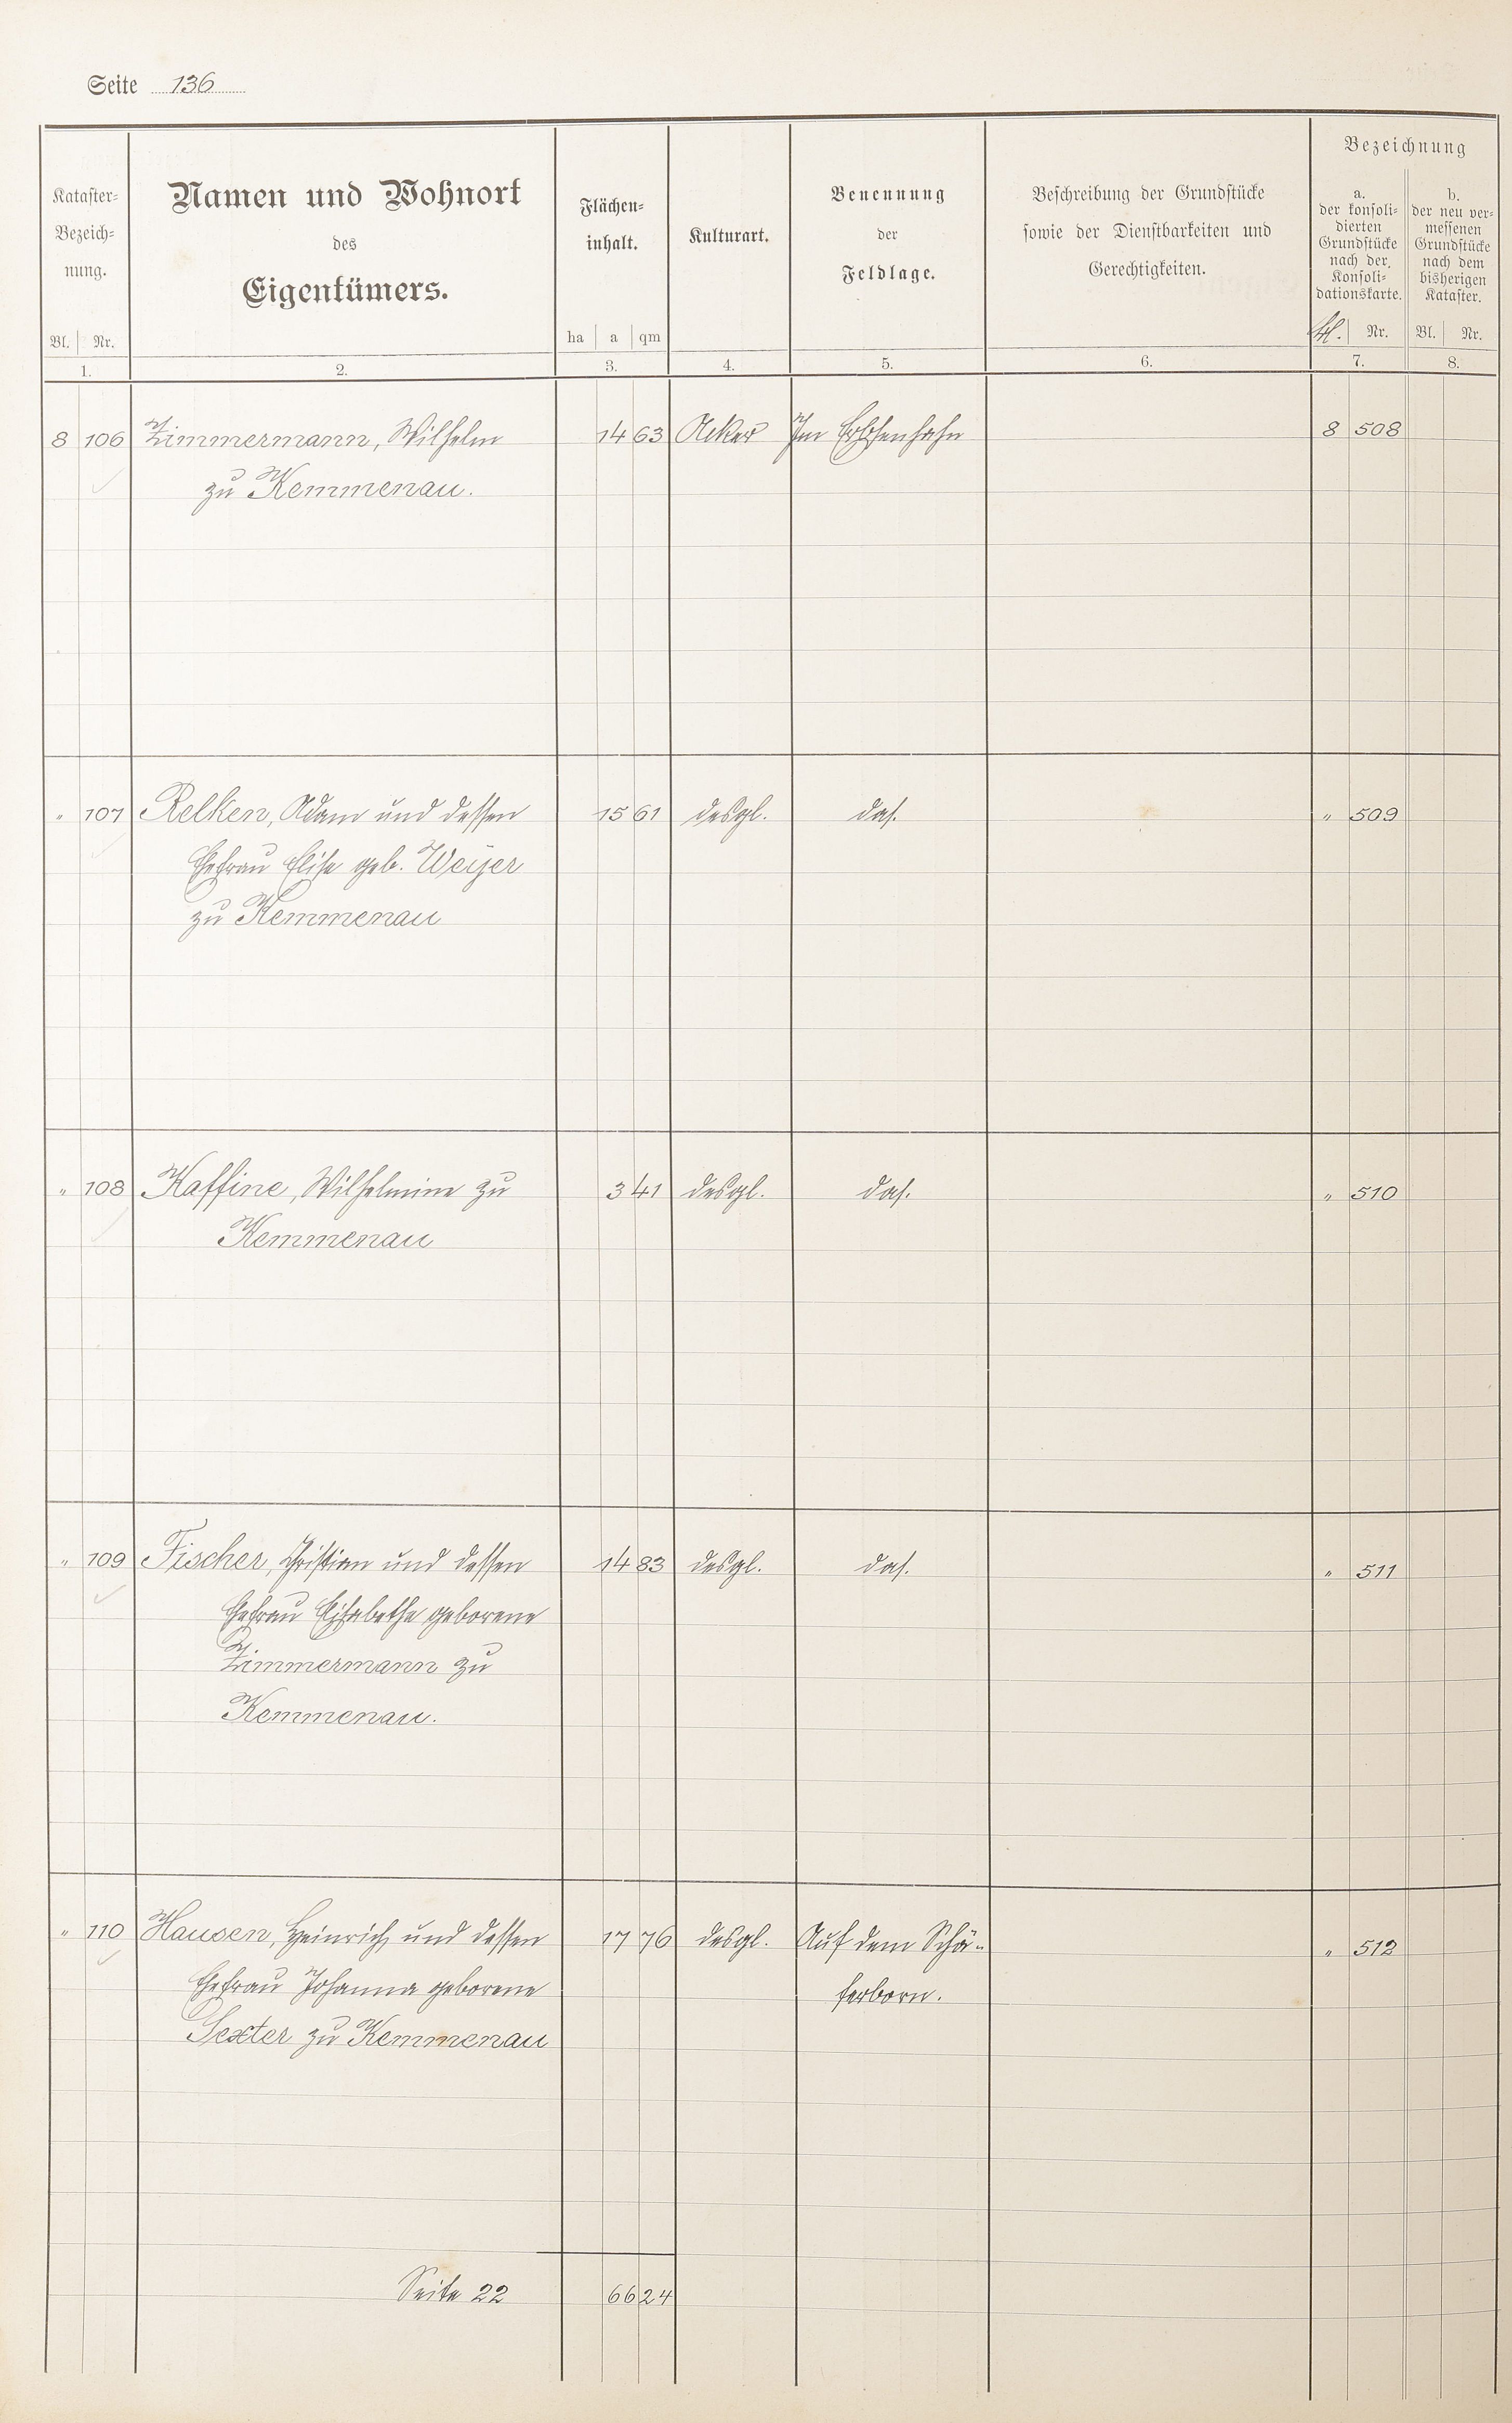 Seite 136
Kataster-
Bezeich-
nung.
Bl. Nr.
1.
Namen und Wohnort
des
Eigentümers.
2.
Flächen-
inhalt.
ha a qm
3.
Kulturart.
4.
Benennung
der
Feldlage.
5.
Beschreibung der Grundstücke
sowie der Dienstbarkeiten und
Gerechtigkeiten.
6.
Bezeichnung
a.
der konsoli-
dierten
Grundstücke
nach der
Konsoli-
dationskarte.
Nr.
7.
b.
der neu ver-
messenen
Grundstücke
nach dem
bisherigen
Kataster.
Bl. Nr.
8.
8 106 Zimmermann, Wilhelm 14 63 Acker Im Erbsenhahn 8 508
zu Kemmenau.
" 107 Relken, Adam und dessen 15 61 desgl. das. " 509
Ehefrau Elise geb. Weyer
zu Kemmenau
" 108 Kaffine, Wilhelmine zu 3 41 desgl. das. " 510
Kemmenau
" 109 Fischer, Christian und dessen 14 83 desgl. das. " 511
Ehefrau Elisabethe geborene
Zimmermann zu
Kemmenau.
" 110 Hausen, Heinrich und dessen 17 76 desgl. Auf dem Schä- " 512
Ehefrau Johanna geborene ferborn.
Sexter zu Kemmenau
Seite 22 66 24